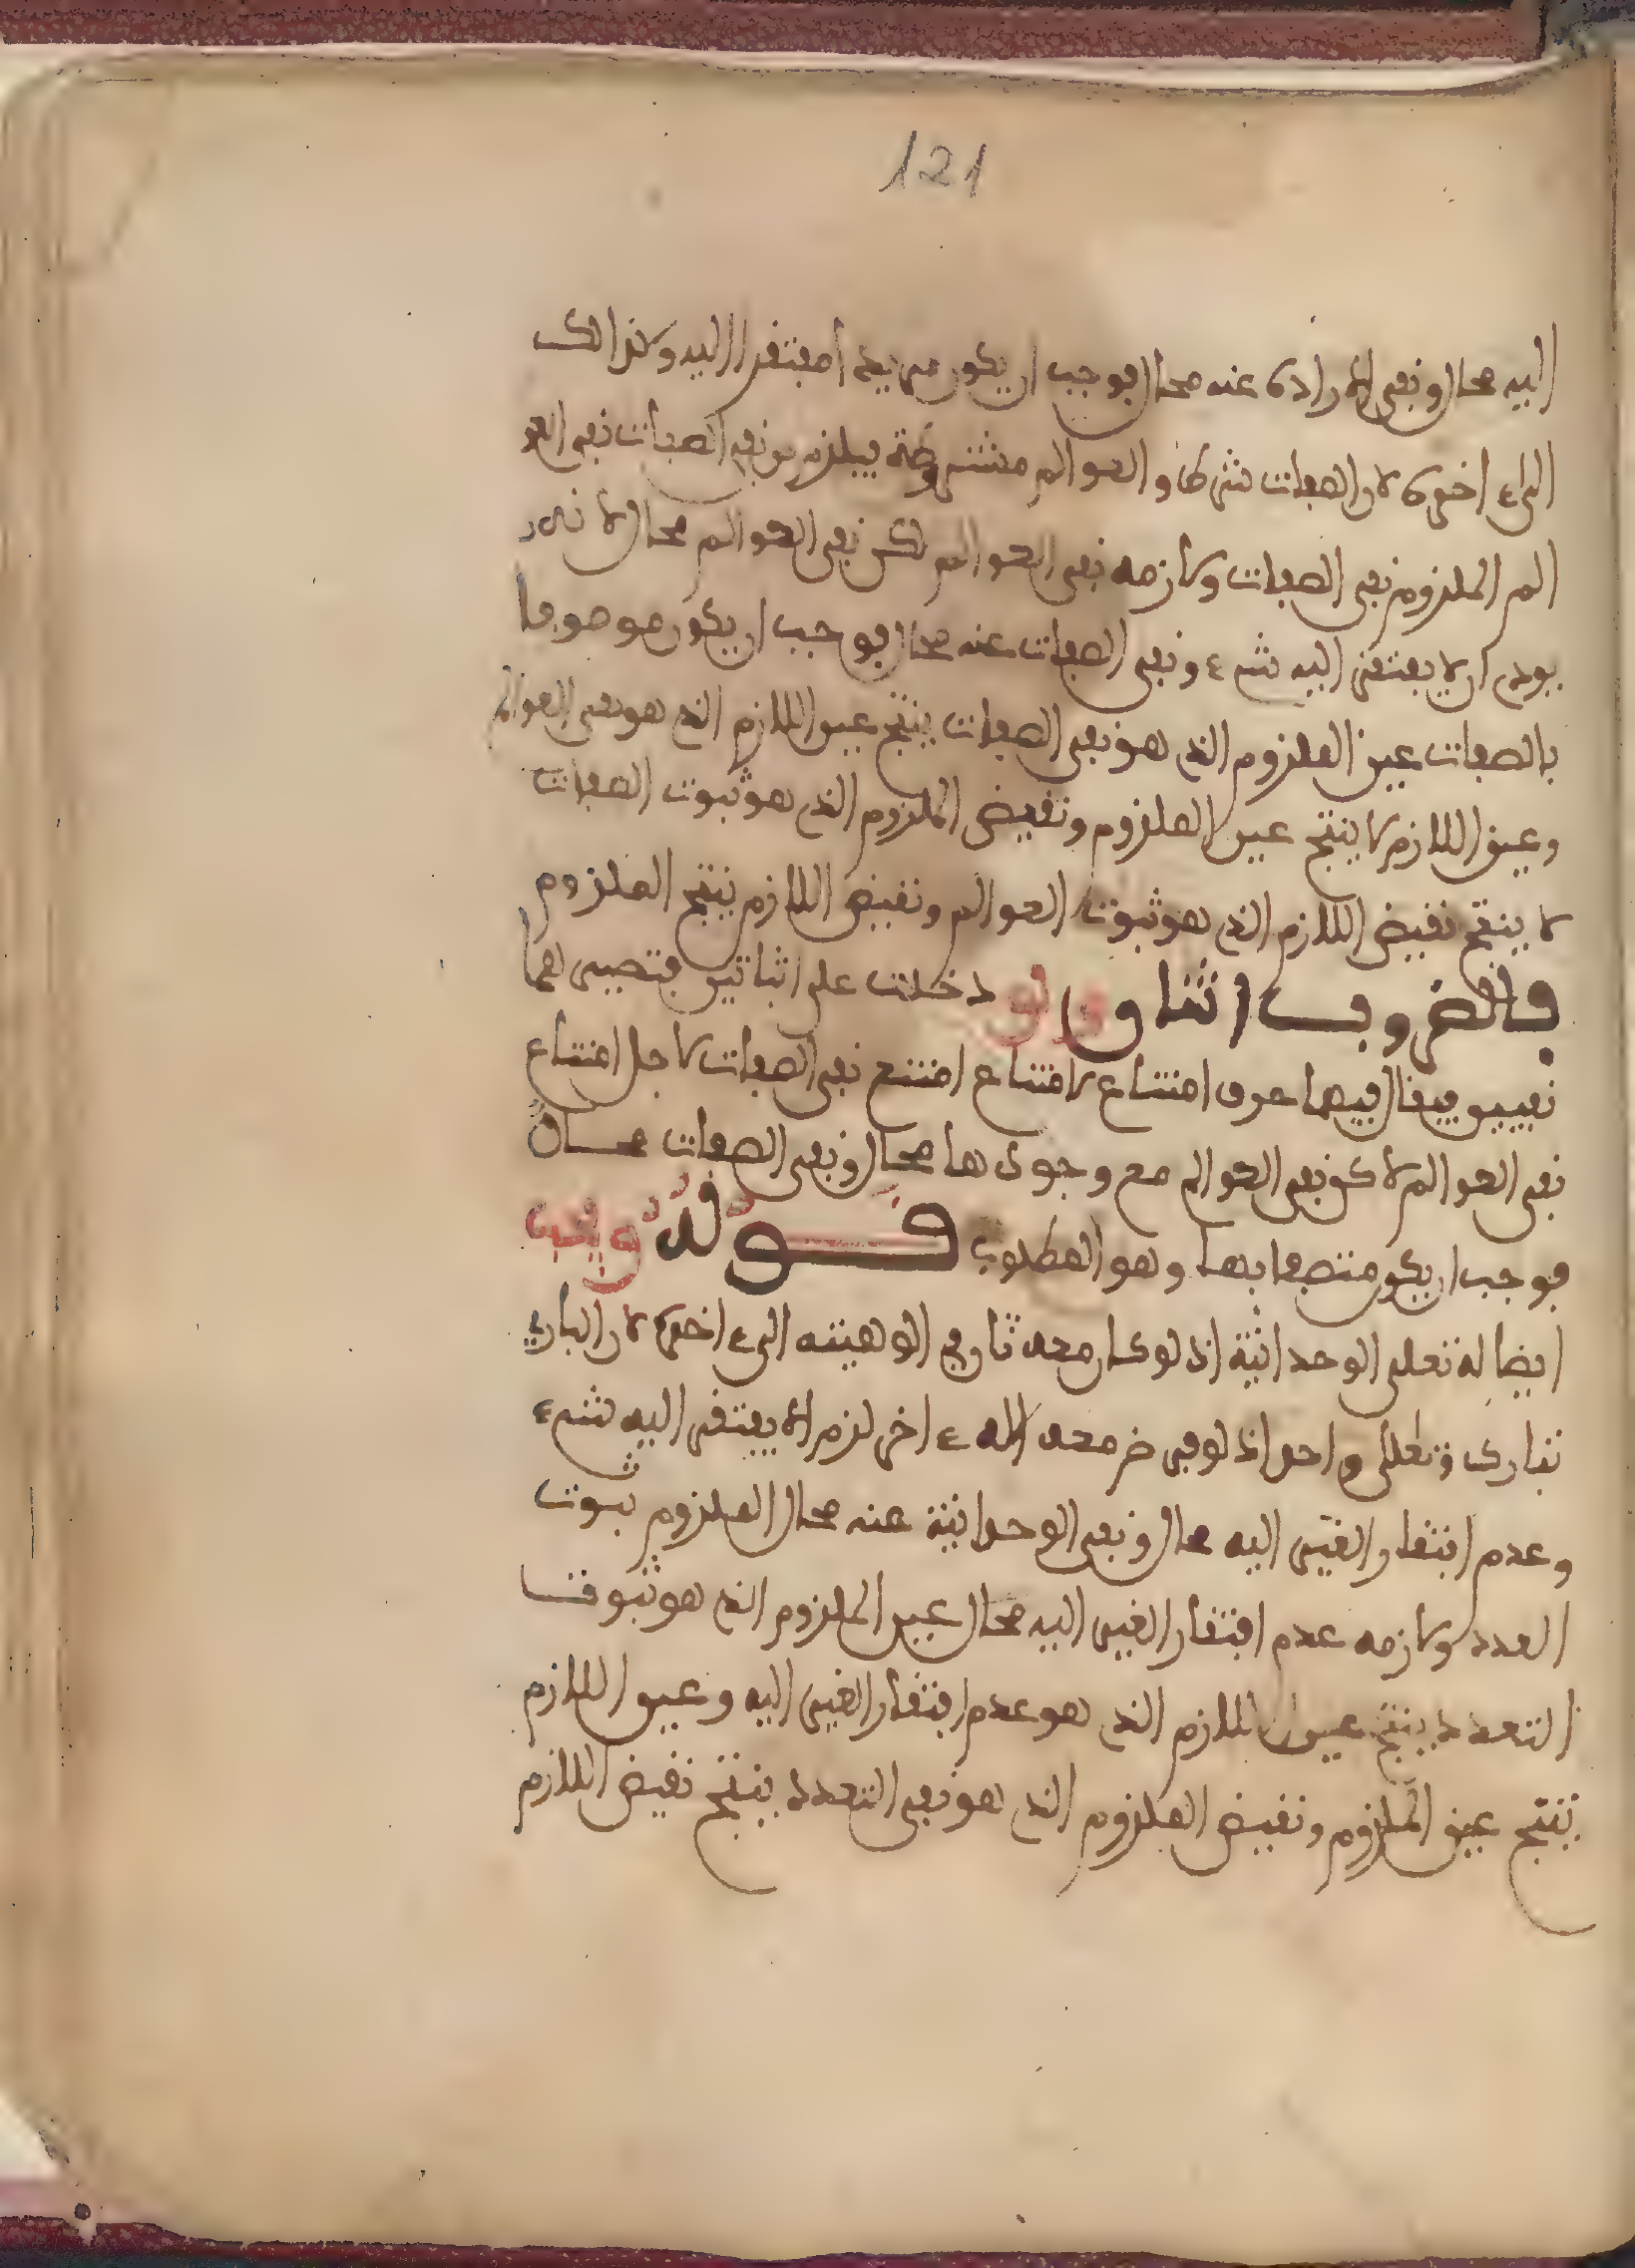 121
اليه محال ونفي الارادة عنه محال فوجب ان يكون مريدا مفتقرا اليه وكذالك
الى ءاخره لان الصفات شرط والعوالم مشروطة فيلزم من نفي الصفات نفي العو
الم الملزوم نفي الصفات ولازمه نفي العوالم لكن نفي العوالم محال لانه
يودي ان لا يفتقر اليه شيء ونفي الصفات عنه محال فوجب ان يكون موصوفا
بالصفات عين الملزوم الذي هو نفي الصفات ينتج عين اللازم الذي هو نفي العوالم
وعين اللازم لا ينتج عين الملزوم ونقيض الملزوم الذي هو ثبوت الصفات
لا ينتج نقيض اللازم الذي هو ثبوت العوالم ونقيض اللازم ينتج الملزوم
فالضروب اثنان ولو دخلت على اثباتين فتصيرهما
نفيين فيقال فيهما حرف امتناع لامتناع امتنع نفي الصفات لاجل امتناع
نفي العوالم لاكن نفي العوالم مع وجودها محال ونفي الصفات محال
فوجب ان يكون متصفا بها وهو المطلوب قوله ويجب
ايضا له تعلى الوحدانية اذ لو كان معه ثان في الوهيته الى ءاخره لان الباري
تبارك وتعلى واحد اذ لو فرض معه اله ءاخر لزم الا يفتقر اليه شيء
وعدم افتقار الغير اليه محال ونفي الوحدانية عنه محال الملزوم ثبوت
العدد ولازمه عدم افتقار الغير اليه محال عين الملزوم الذي هو ثبوت
التعدد ينتج عين اللازم الذي هو عدم افتقار الغير اليه وعين اللازم
ينتج عين الملزوم ونقيض الملزوم الذي هو نفي التعدد ينتج نقيض اللازم